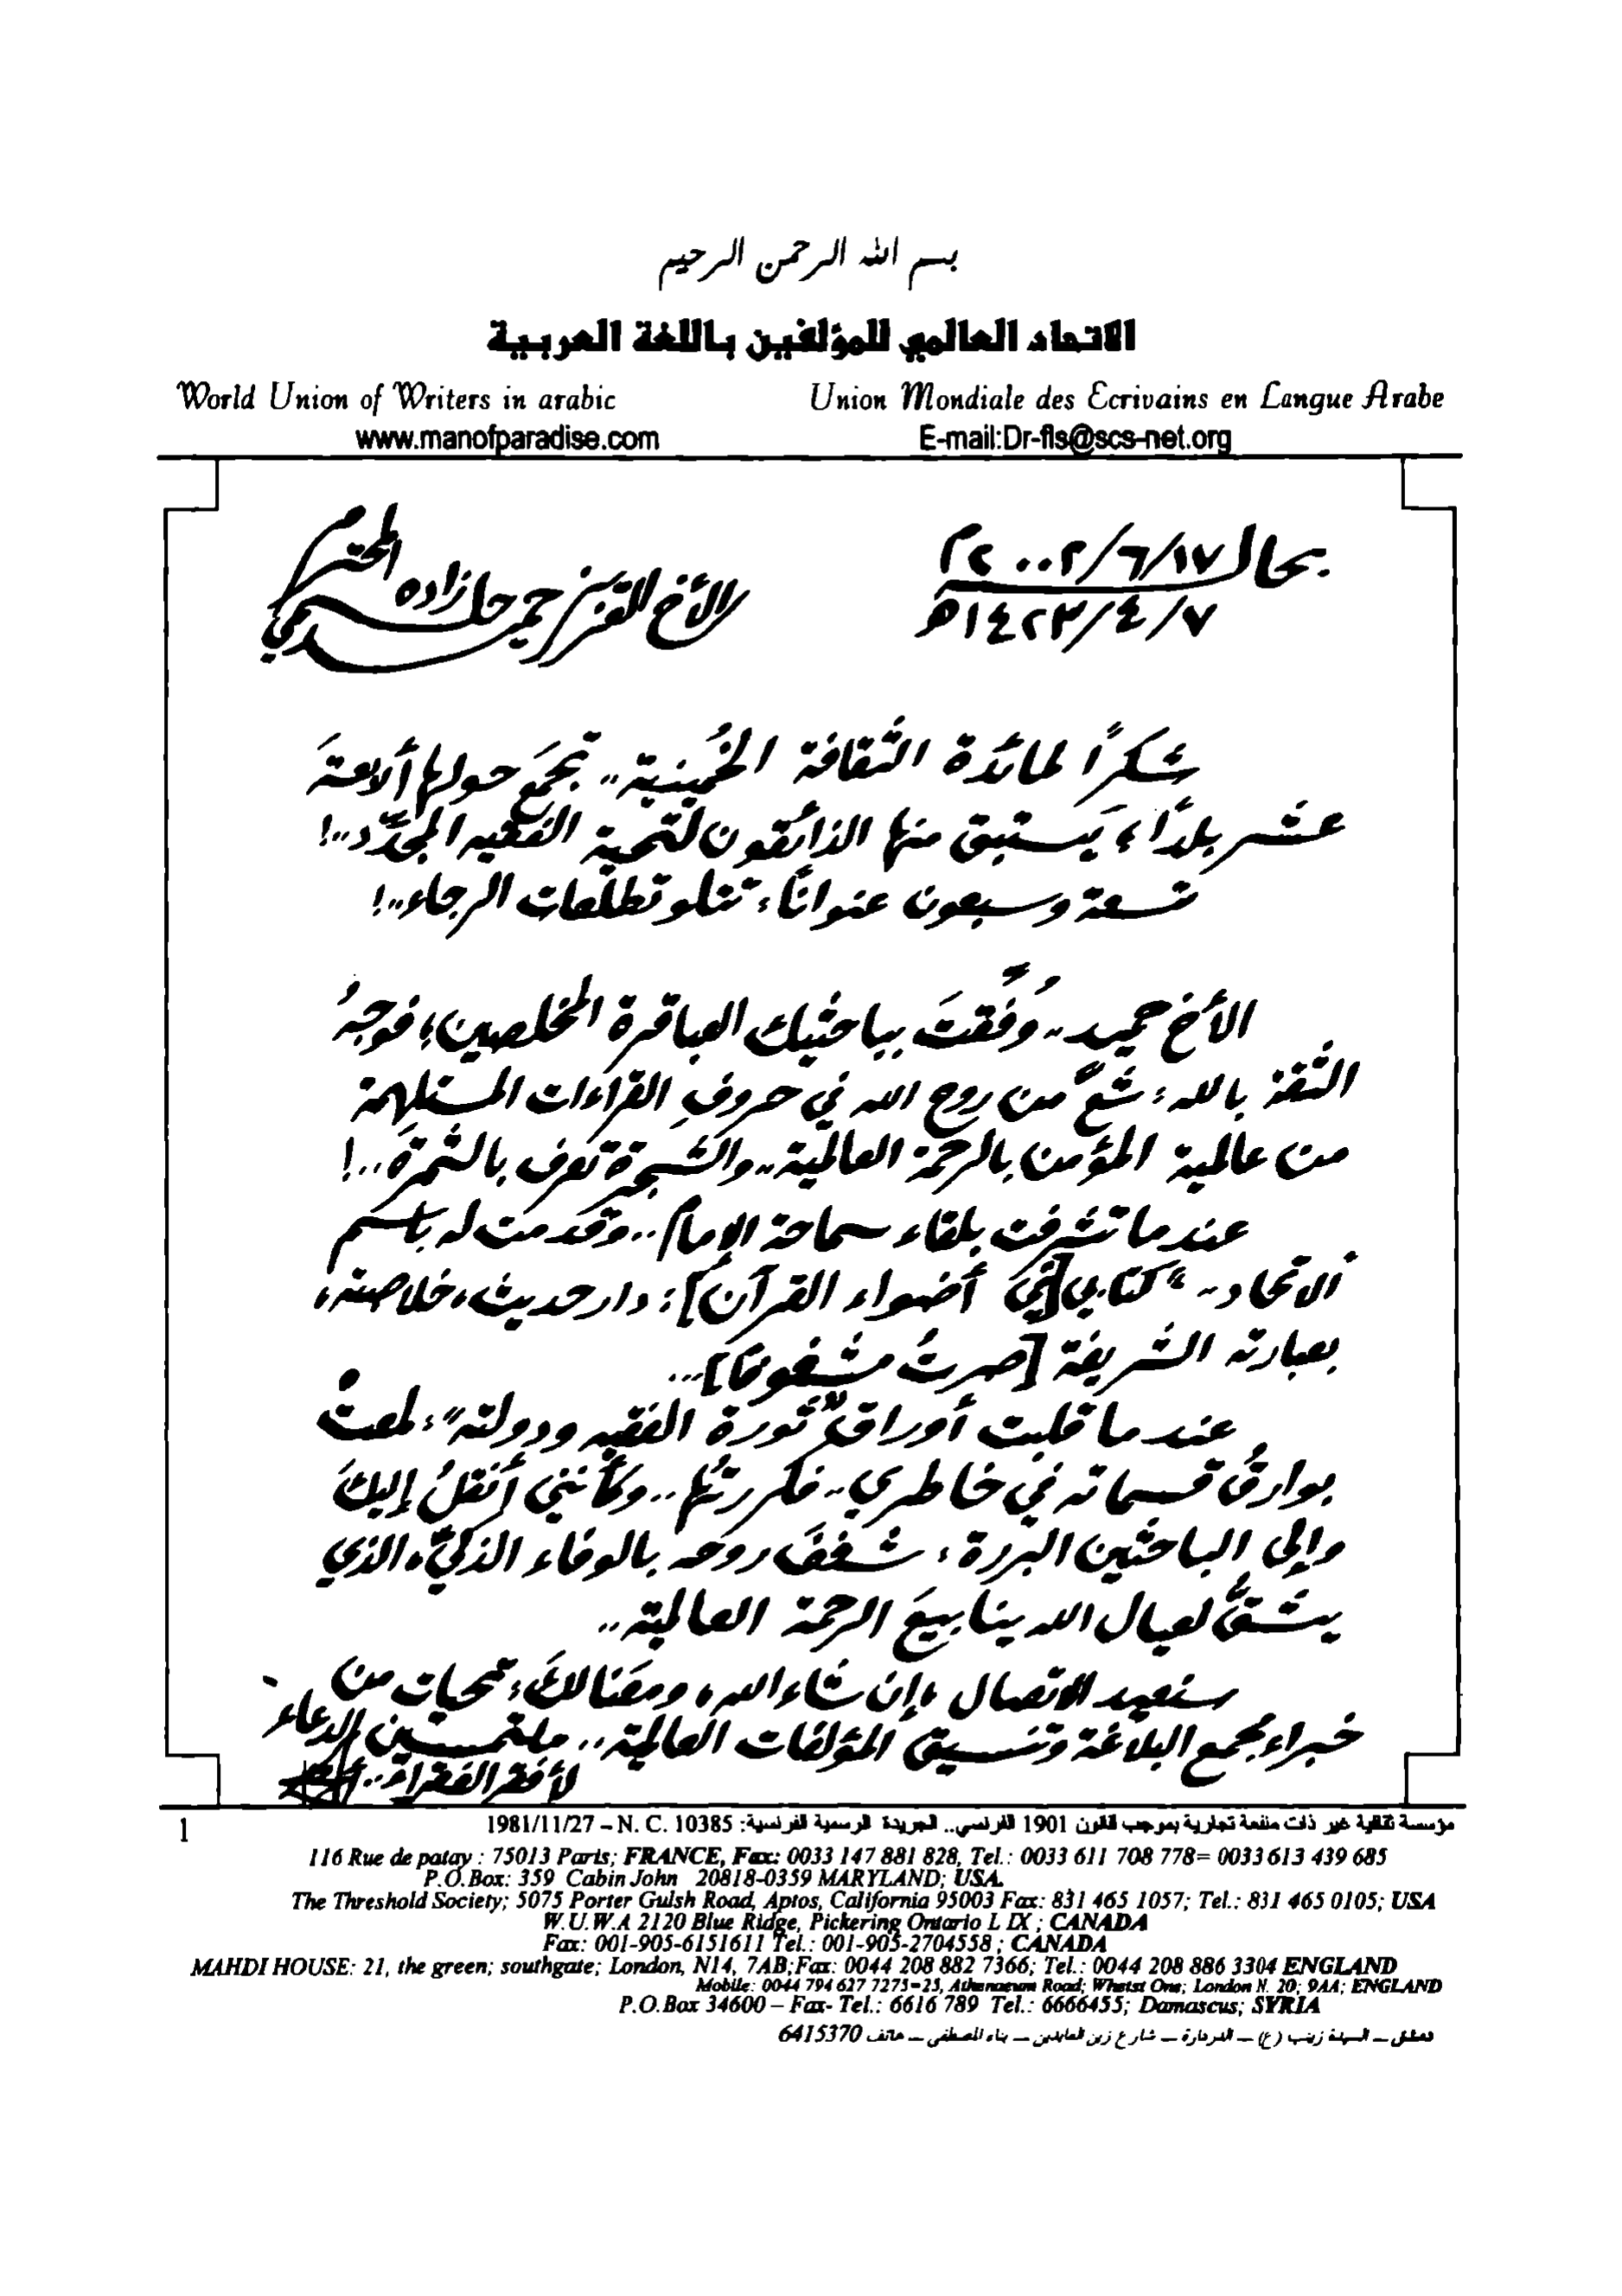 بسم الله الرحمن الرحيم
الاتحاد العالمي للمؤلفين باللغة العربية
World Union of Writers in arabic Union Mondiale des Ecrivains en Langue Arabe
www.manofparadise.com E-mail:Dr-fls@scs-net.org
بحال ٢٠٠٢/٦/١٧م
٧/٤/١٤٢٣هـ
الأخ العزيز حميد حاج زاده المحترم
شكراً لمائدة الثّقافة الخُمينية.. تجمَّع حولها أربعةَ
عشر بلداً، يَستبق منها الذائقون لتحية الفقيه المجدّد..!
تسعة وسبعون عنواناً، تتلو تطلّعات الرجاء..!
الأخ حميد.. وُفِّقتَ بباحثيك العباقرة المخلصين؛ فوجهُ
الثقة بالله: شعَّ من روح الله في حروفِ القراءات المستلهمة
من عالمية المؤمن بالرحمة العالمية.. والشجرة تعرف بالثمرة..!
عندما تشرفت بلقاء سماحة الإمام.. وقدمت له باسم
الاتحاد.. كتابي [في أضواء القرآن]: دار حديث، خلاصته،
بعبارته الشريفة [صرتُ مشغوفاً]...
عندما قلبت أوراق "ثورة الفقيه ودولته"، لمعتْ
بوارقُ قسماته في خاطري.. فكررتُها.. وكأنني أنقلُ إليكَ
وإلى الباحثين البررة، شغفَ روحه بالوفاء الذكيّ، الذي
يشقُّ لعيال الله ينابيعَ الرحمة العالمية..
سنعيد الاتصال، إن شاء الله، وهنالكَ، تحيات من
خبراء مجمع البلاغة وتنسيق المؤلفات العالمية.. ملتمسين الدعاء
لأفقر الفقراء..
مؤسسة ثقافية غير ذات منفعة تجارية بموجب قانون 1901 الفرنسي.. الجريدة الرسمية الفرنسية: 1981/11/27 – N. C. 10385
1
116 Rue de patay : 75013 Paris; FRANCE, Fax: 0033 147 881 828, Tel.: 0033 611 708 778= 0033 613 439 685
P.O.Box: 359 Cabin John 20818-0359 MARYLAND; USA.
The Threshold Society; 5075 Porter Gulsh Road, Aptos, California 95003 Fax: 831 465 1057; Tel.: 831 465 0105; USA
W.U.W.A 2120 Blue Ridge, Pickering Ontario L IX ; CANADA
Fax: 001-905-6151611 Tel.: 001-905-2704558 ; CANADA
MAHDI HOUSE: 21, the green; southgate; London, N14, 7AB;Fax: 0044 208 882 7366; Tel.: 0044 208 886 3304 ENGLAND
Mobile: 0044 794 627 7275=25, Athenaeum Road; Whetst One; London N. 20; 9AA; ENGLAND
P.O.Box 34600 – Fax- Tel.: 6616 789 Tel.: 6666455; Damascus; SYRIA
دمشق – السيدة زينب (ع) – شارع زين العابدين – بناء المصطفى – هاتف 6415370